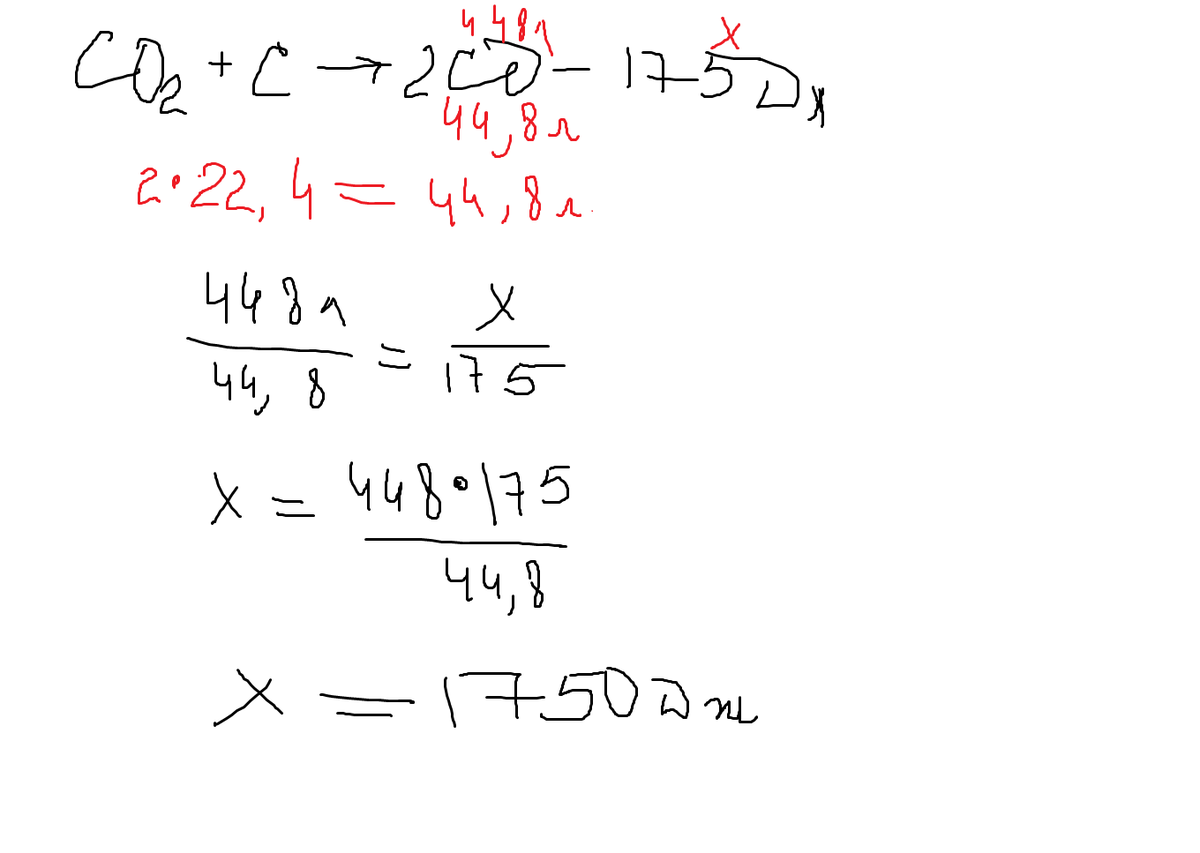 448л X
CO₂ + C → 2CO – 175 Дж
44,8л
2·22,4 = 44,8л.
448л/44,8 = X/175
X = 448·175/44,8
X = 1750 Дж